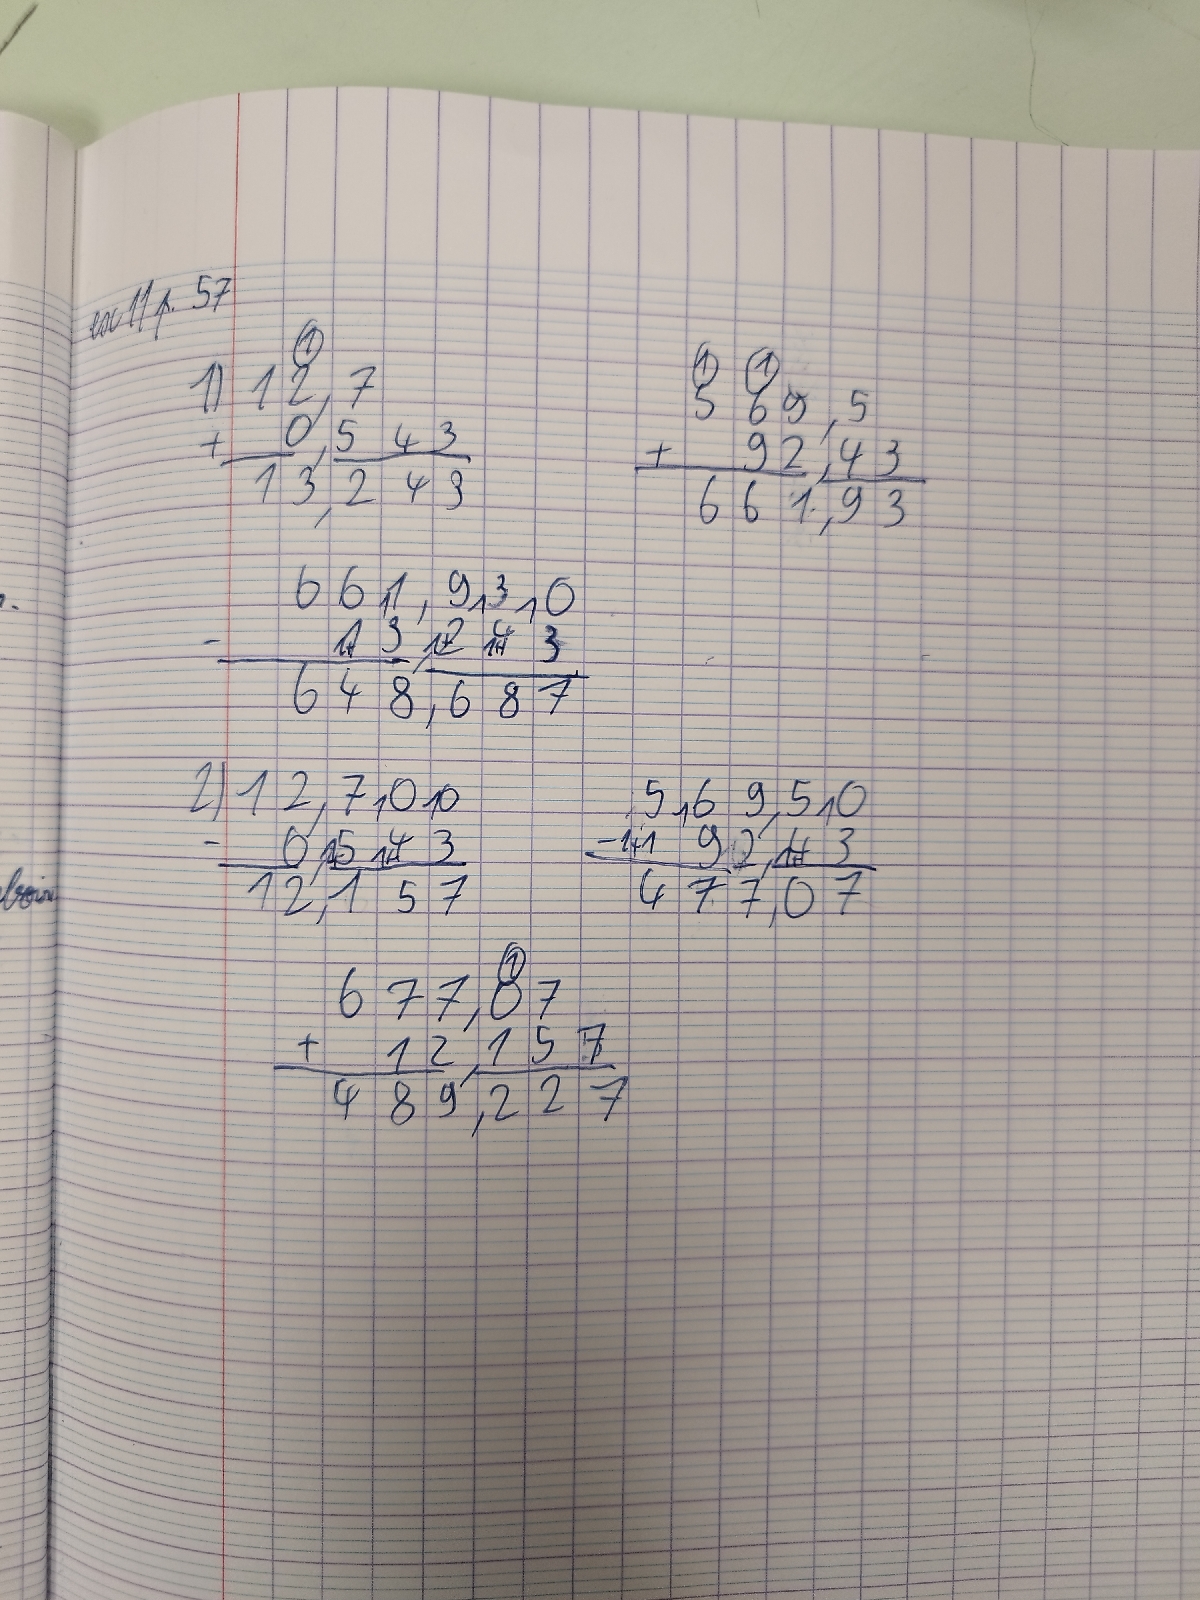 ex 11 p. 57
① 
1) 12,7
+ 0,543
13,243
① ①
569,5
+ 92,43
661,93
661,930
- 13,243
648,687
2) 12,700
- 0,543
12,157
569,50
- 92,43
477,07
①
677,07
+ 12,157
489,227